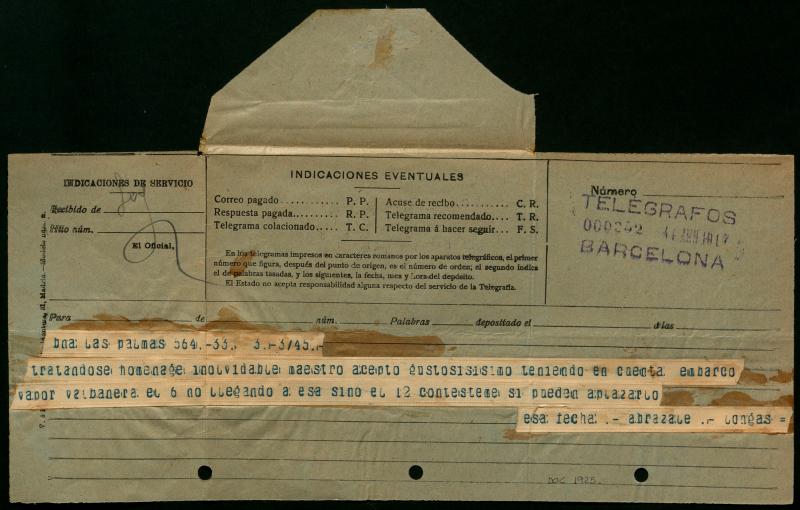 INDICACIONES DE SERVICIO
Recibido de
Hilo núm.
El Oficial,
INDICACIONES EVENTUALES
Correo pagado........... P. P.
Respuesta pagada......... R. P.
Telegrama colacionado.... T. C.
Acuse de recibo.......... C. R.
Telegrama recomendado.... T. R.
Telegrama á hacer seguir.. F. S.
En los telegramas impresos en caracteres romanos por los aparatos telegráficos, el primer
número que figura, después del punto de origen, es el número de orden; el segundo indica
el de palabras tasadas, y los siguientes, la fecha, mes y hora del depósito.
El Estado no acepta responsabilidad alguna respecto del servicio de la Telegrafía.
Número
TELEGRAFOS
000242
BARCELONA
Para de núm. Palabras depositado el á las
bna las palmas 564.-33. 3.-3/45.-
tratandose homenage inolvidable maestro acepto gustosisisimo teniendo en cuenta embarco
vapor valbanera el 6 no llegando a esa sino el 12 contesteme si pueden aplazarlo
esa fecha .- abrazale .- longas =
DOC 1925.